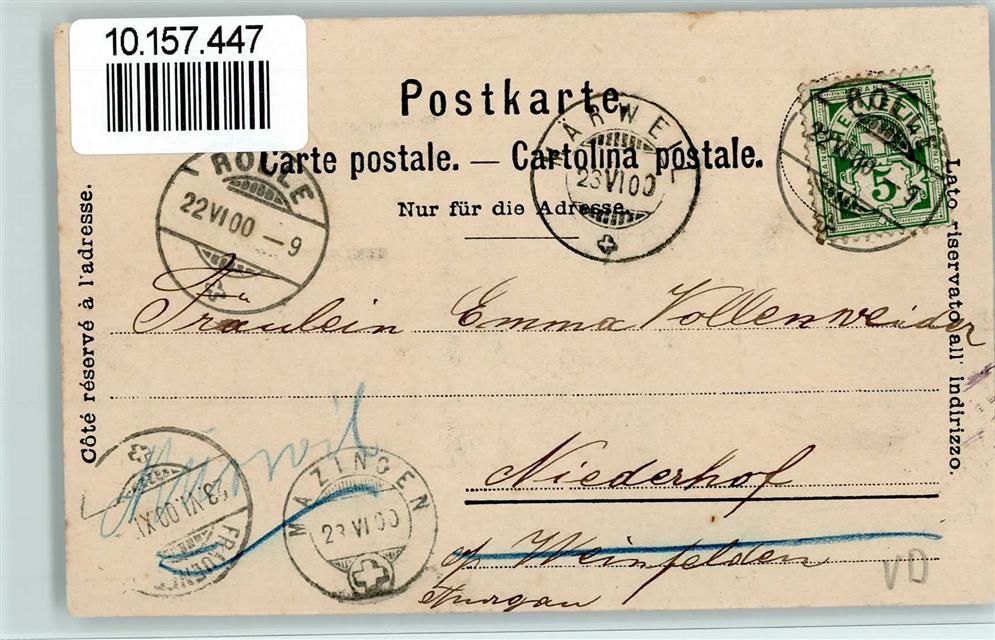 10.157.447
Postkarte.
Carte postale. — Cartolina postale.
Nur für die Adresse.
Côté réservé à l'adresse.
Lato riservato all' indirizzo.
ROLLE
22 VI 00 – 9
MÄRWEIL
23 VI 00
ROLLE
5
Fräulein Emma Vollenweider
Niederhof
p/ Weinfelden
Thurgau
MAZINGEN
23 VI 00
FRAUENF
VD